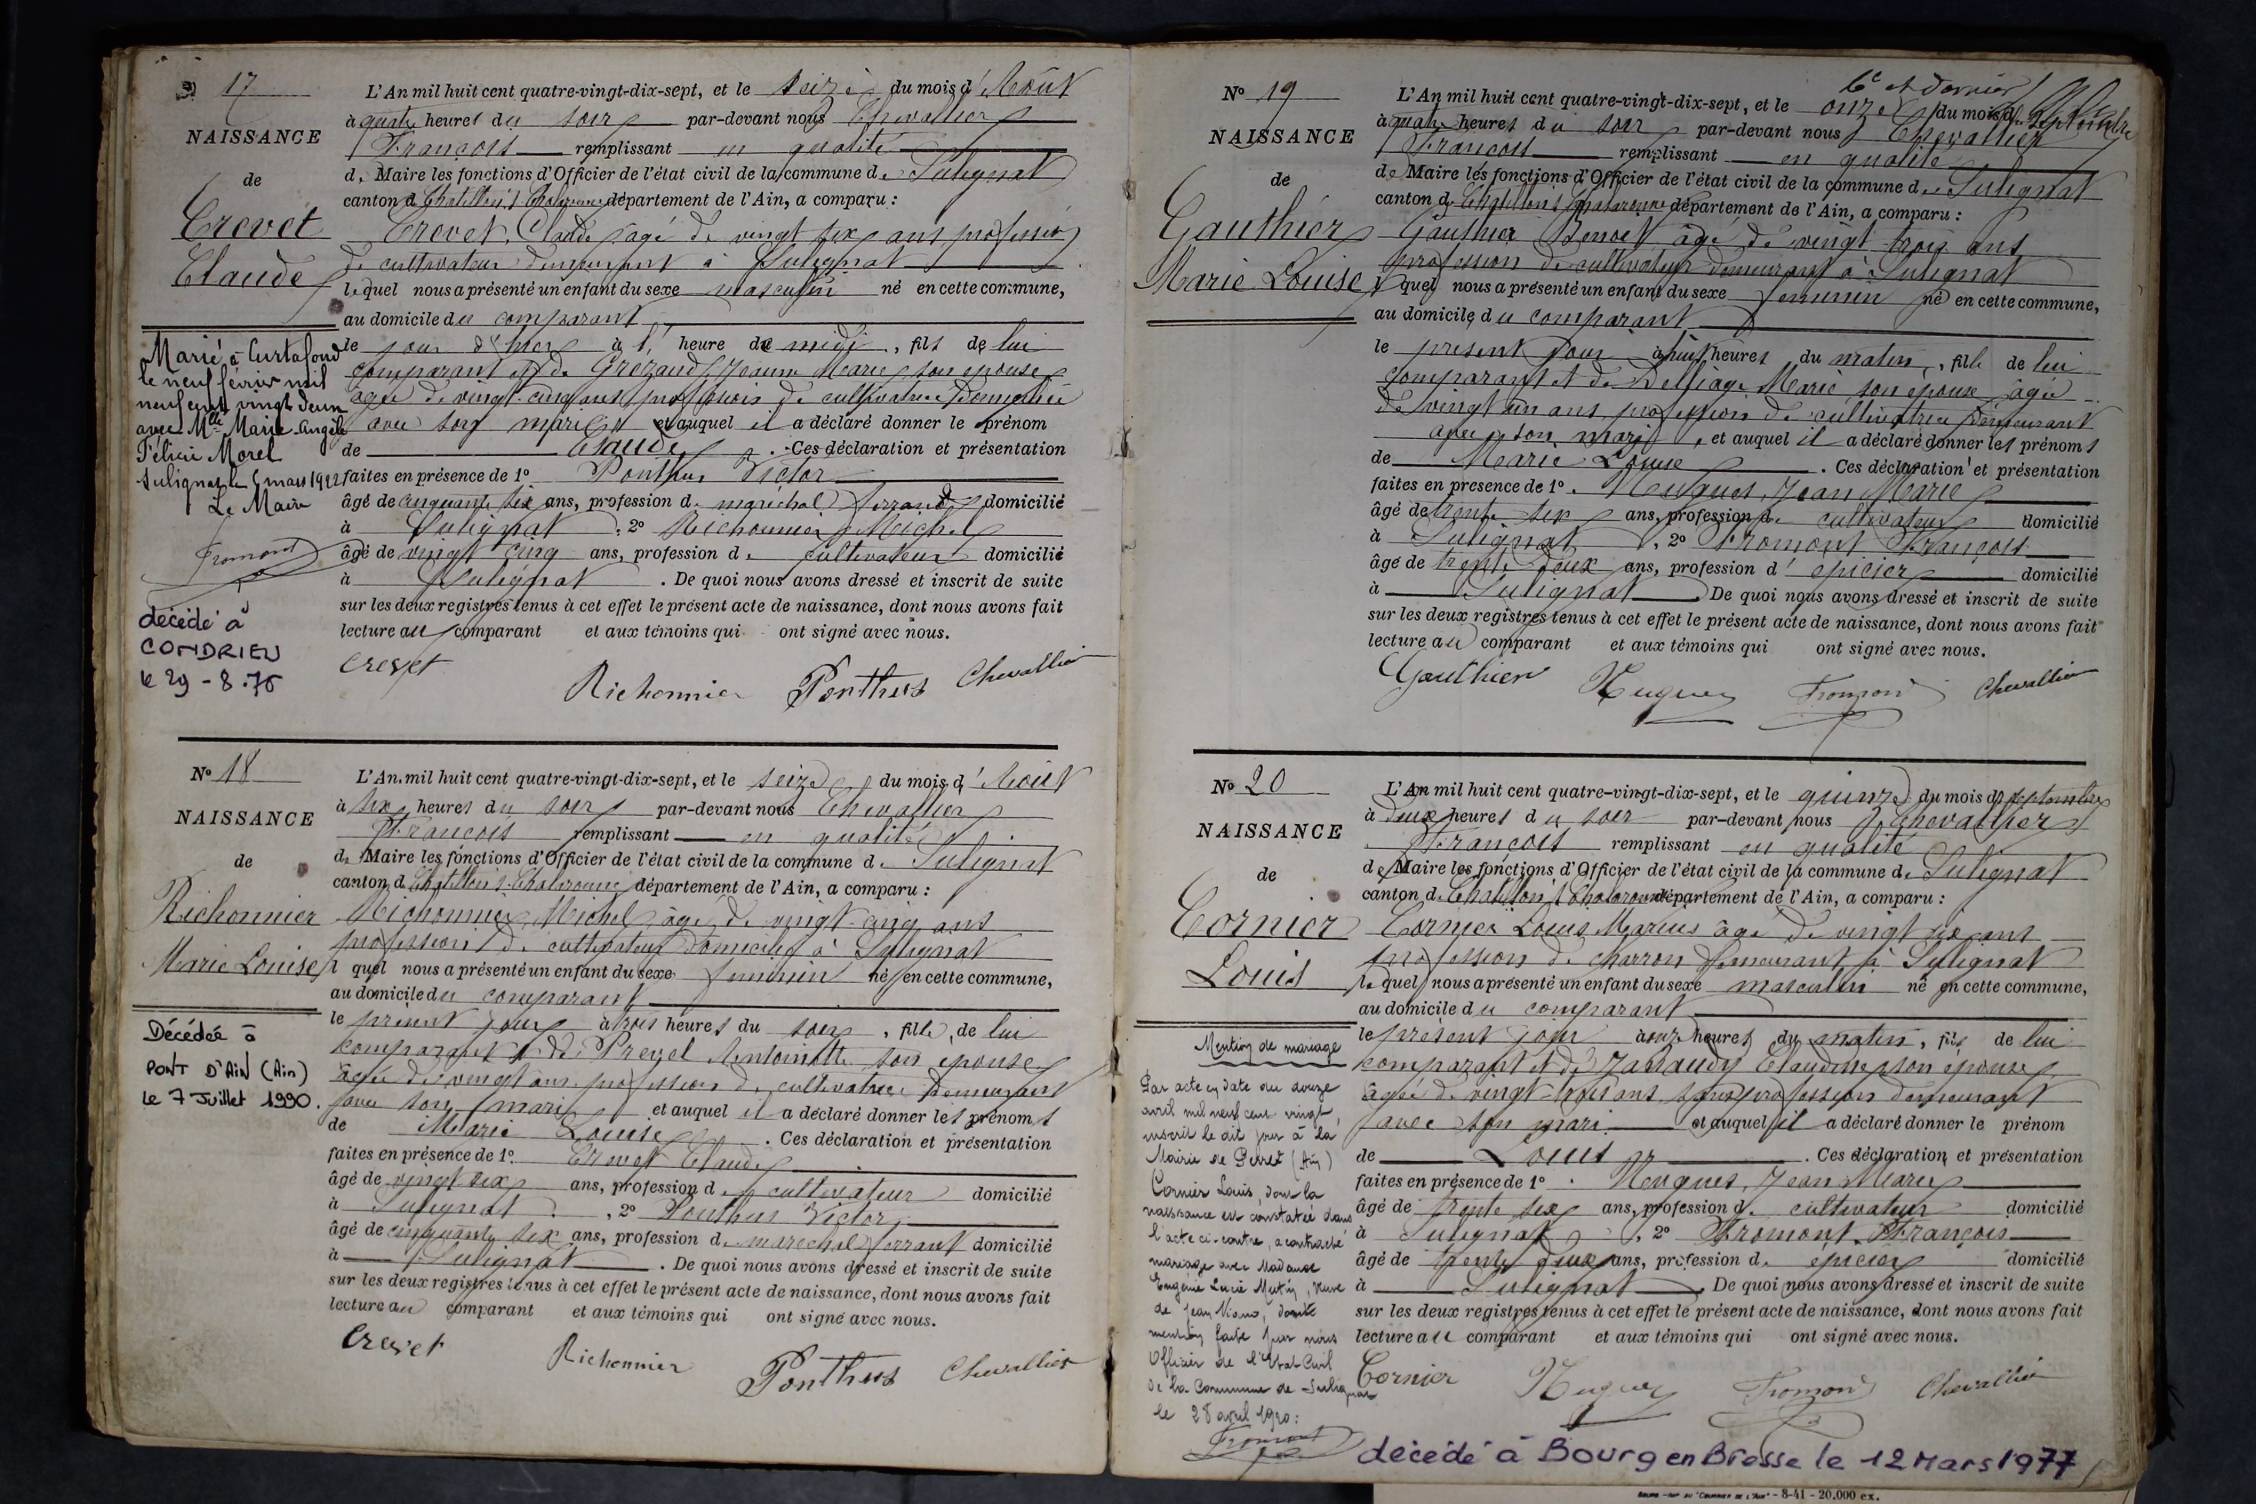 17
NAISSANCE
de
Crevet
Claude
Marié à Curtafond
le neuf février mil
neuf cent vingt deux
avec Mlle Marie Angèle
Félicie Morel
Sulignat le 6 mars 1922
Le Maire
Fromont
décédé à
CONDRIEU
le 29-8.76
L'An mil huit cent quatre-vingt-dix-sept, et le seize du mois d'Août
à quatre heures du soir par-devant nous Chevallier
François remplissant en qualité
de Maire les fonctions d'Officier de l'état civil de la commune de Sulignat
canton de Châtillon s/ Chalaronne département de l'Ain, a comparu :
Crevet Claude âgé de vingt six ans profession
de cultivateur demeurant à Sulignat
lequel nous a présenté un enfant du sexe masculin né en cette commune,
au domicile du comparant
le jour d'hier à l' heure de midi, fils de lui
comparant et de Grézaud Jeanne Marie son épouse
âgée de vingt-cinq ans profession de cultivatrice domiciliée
avec son mari et auquel il a déclaré donner le prénom
de Claude. Ces déclaration et présentation
faites en présence de 1º Ponthus Victor
âgé de cinquante six ans, profession de maréchal ferrand domicilié
à Sulignat, 2º Richonnier Michel
âgé de vingt cinq ans, profession de cultivateur domicilié
à Sulignat. De quoi nous avons dressé et inscrit de suite
sur les deux registres tenus à cet effet le présent acte de naissance, dont nous avons fait
lecture au comparant et aux témoins qui ont signé avec nous.
Crevet Richonnier Ponthus Chevallier
Nº 18
NAISSANCE
de
Richonnier
Marie Louise
Décédée à
PONT D'AIN (Ain)
le 7 Juillet 1990.
L'An mil huit cent quatre-vingt-dix-sept, et le seize du mois d'Août
à six heures du soir par-devant nous Chevallier
François remplissant en qualité
de Maire les fonctions d'Officier de l'état civil de la commune de Sulignat
canton de Châtillon s. Chalaronne département de l'Ain, a comparu :
Richonnier Michel âgé de vingt-cinq ans
profession de cultivateur domicilié à Sulignat
lequel nous a présenté un enfant du sexe féminin né en cette commune,
au domicile du comparant
le présent jour à trois heures du soir, fille de lui
comparant et de Preyel Antoinette son épouse
âgée de vingt ans profession de cultivatrice demeurant
avec son mari et auquel il a déclaré donner les prénoms
de Marie Louise. Ces déclaration et présentation
faites en présence de 1º Crevet Claude
âgé de vingt six ans, profession de cultivateur domicilié
à Sulignat, 2º Ponthus Victor
âgé de cinquante six ans, profession de maréchal ferrant domicilié
à Sulignat. De quoi nous avons dressé et inscrit de suite
sur les deux registres tenus à cet effet le présent acte de naissance, dont nous avons fait
lecture au comparant et aux témoins qui ont signé avec nous.
Crevet Richonnier Ponthus Chevallier
6e et dernier
Nº 19
NAISSANCE
de
Gauthier
Marie Louise
L'An mil huit cent quatre-vingt-dix-sept, et le onze du mois de Septembre
à quatre heures du soir par-devant nous Chevallier
François remplissant en qualité
de Maire les fonctions d'Officier de l'état civil de la commune de Sulignat
canton de Châtillon s/ Chalaronne département de l'Ain, a comparu :
Gauthier Benoit âgé de vingt trois ans
profession de cultivateur demeurant à Sulignat
lequel nous a présenté un enfant du sexe féminin né en cette commune,
au domicile du comparant
le présent jour à huit heures du matin, fille de lui
comparant et de Delliage Marie son épouse âgée
de vingt un ans profession de cultivatrice demeurant
avec son mari, et auquel il a déclaré donner les prénoms
de Marie Louise. Ces déclaration et présentation
faites en présence de 1º. Hugues, Jean Marie
âgé de trente six ans, profession de cultivateur domicilié
à Sulignat, 2º Fromont François
âgé de trente deux ans, profession d'épicier domicilié
à Sulignat. De quoi nous avons dressé et inscrit de suite
sur les deux registres tenus à cet effet le présent acte de naissance, dont nous avons fait
lecture au comparant et aux témoins qui ont signé avec nous.
Gauthier Hugues Fromont Chevallier
Nº 20
NAISSANCE
de
Cornier
Louis
Mention de mariage
Par acte en date du douze
avril mil neuf cent vingt
inscrit le dit jour à la
Mairie de Perret (Ain)
Cornier Louis, dont la
naissance est constatée dans
l'acte ci-contre, a contracté
mariage avec Madame
Eugénie Lucie Mutin, veuve
de Jean Viano, dont
mention faite par nous
Officier de l'Etat-Civil
de la Commune de Sulignat
le 28 avril 1920:
Fromont
L'An mil huit cent quatre-vingt-dix-sept, et le quinze du mois de septembre
à deux heures du soir par-devant nous Chevallier
François remplissant en qualité
de Maire les fonctions d'Officier de l'état civil de la commune de Sulignat
canton de Châtillon s/ Chalaronne département de l'Ain, a comparu :
Cornier Louis Marius âgé de vingt six ans
profession de charron demeurant à Sulignat
lequel nous a présenté un enfant du sexe masculin né en cette commune,
au domicile du comparant
le présent jour à onze heures du matin, fils de lui
comparant et de Janaudy Claudine son épouse
âgée de vingt-trois ans sans profession demeurant
avec son mari et auquel il a déclaré donner le prénom
de Louis. Ces déclaration et présentation
faites en présence de 1º. Hugues, Jean Marie
âgé de trente six ans, profession de cultivateur domicilié
à Sulignat, 2º Fromont François
âgé de trente deux ans, profession de épicier domicilié
à Sulignat. De quoi nous avons dressé et inscrit de suite
sur les deux registres tenus à cet effet le présent acte de naissance, dont nous avons fait
lecture au comparant et aux témoins qui ont signé avec nous.
Cornier Hugues Fromont Chevallier
décédé à Bourg en Bresse le 12 Mars 1977
BOURG - IMP. DU "COURRIER DE L'AIN" - 8-41 - 20.000 ex.